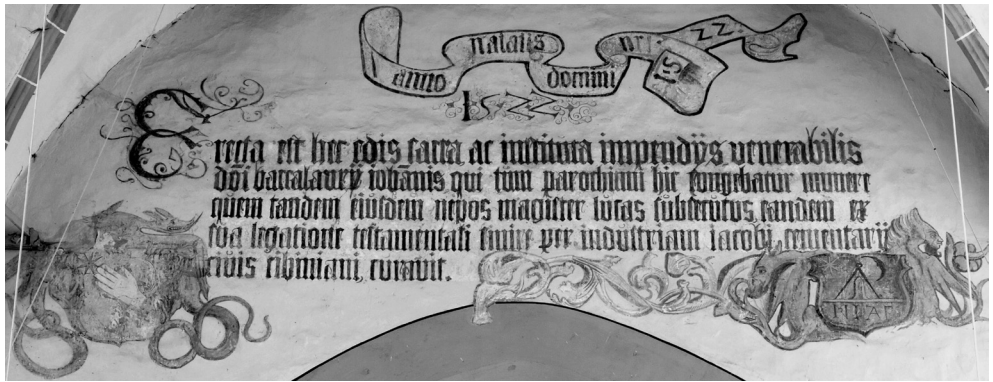 anno natalis domini nri: 15 22:
1522
Erecta est hec edis sacra ac institura impendijs venerabilis
dōi baccalaureij iohānis qui tūm parochiani hic fongebatur munere
quem tandem eiūsdem nepos magister lūcas sūbsecūtus eandem ex
sūa legatione testamentali finire per indūstriam iacobj cementarij
civis cibiniani curavit.